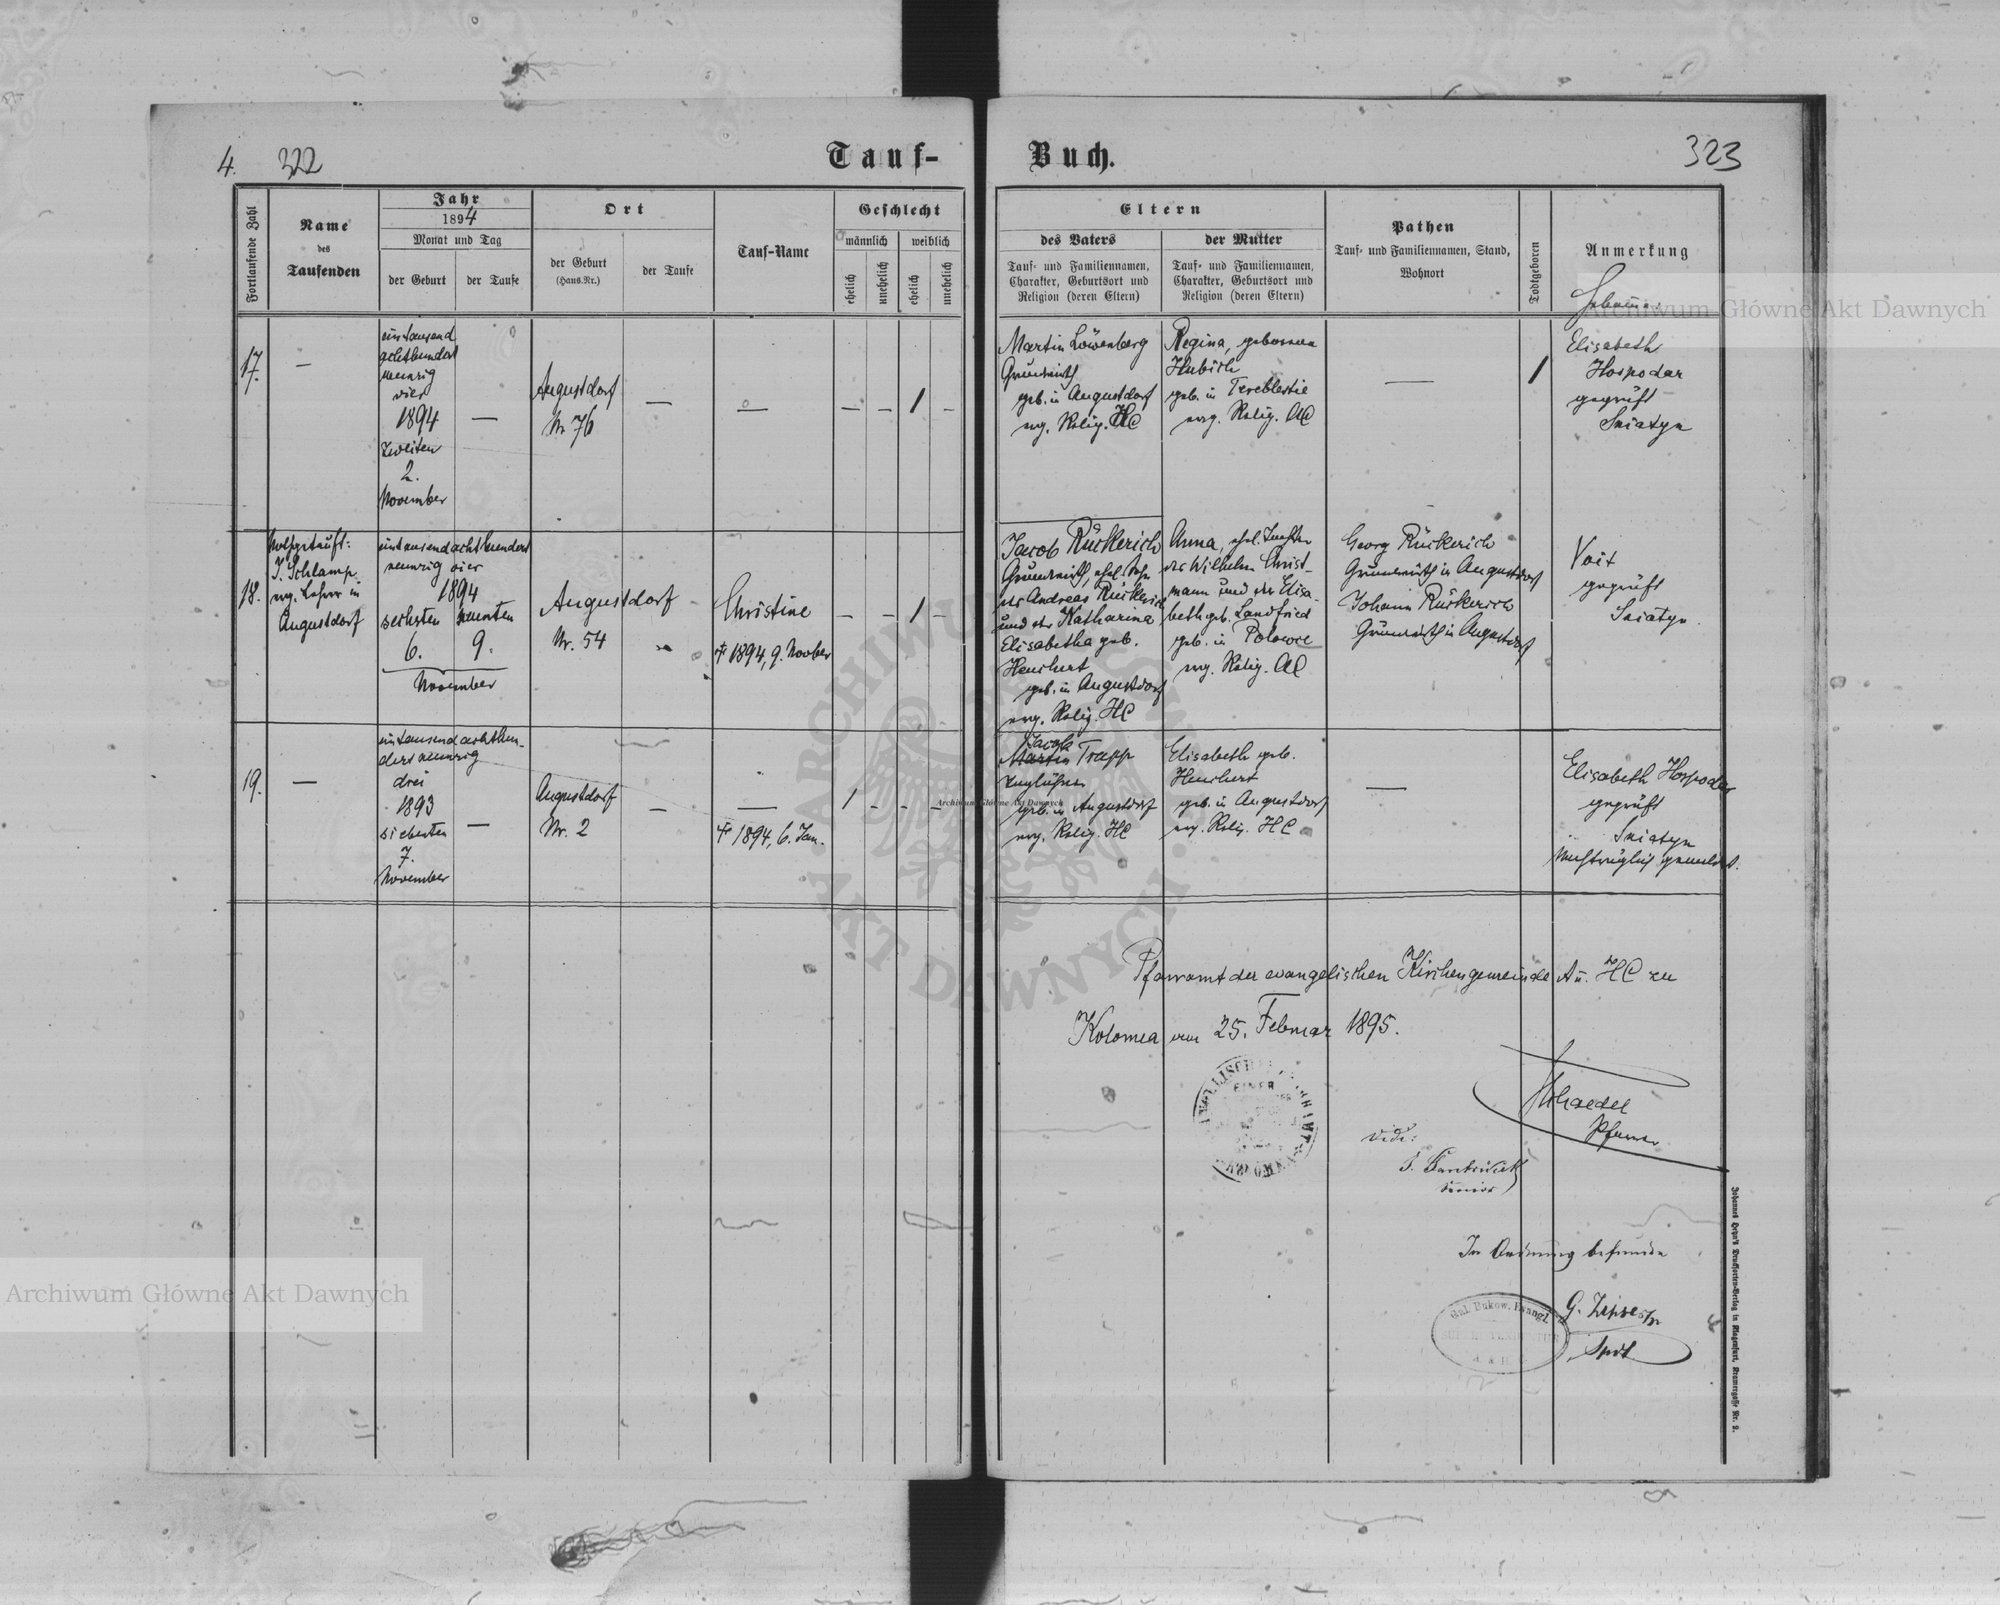 4. 322
Tauf-
Buch.
323
Fortlaufende Zahl
Name
des
Taufenden
Jahr
1894
Monat und Tag
der Geburt
der Taufe
Ort
der Geburt
(Haus-Nr.)
der Taufe
Tauf-Name
Geschlecht
männlich
weiblich
ehelich
unehelich
ehelich
unehelich
Eltern
des Vaters
Tauf- und Familiennamen,
Charakter, Geburtsort und
Religion (deren Eltern)
der Mutter
Tauf- und Familiennamen,
Charakter, Geburtsort und
Religion (deren Eltern)
Pathen
Tauf- und Familiennamen, Stand,
Wohnort
Todtgeboren
Anmerkung
Hebamme:
17.
—
eintausend
achthundert
neunzig
vier
1894
zweiten
2.
November
—
Augustdorf
Nr 76
—
—
— — / —
Martin Löwenberg
Grundwirth
geb. in Augustdorf
evg. Relig. HC
Regina, geborene
Hubich
geb. in Tereblestie
evg. Relig. AC
—
/
Elisabeth
Hospodar
geprüft
Sniatyn
18.
Nothgetauft:
J. Schlamp
evg. Lehrer in
Augustdorf
eintausendachthundert
neunzig vier
1894
sechsten neunten
6. 9.
November
Augustdorf
Nr. 54
Christine
† 1894, 9. Novber
— — / —
Jacob Rückerich
Grundwirth, ehel. Sohn
des Andreas Rückerich
und der Katharina
Elisabetha geb.
Heuchert
geb. in Augustdorf
evg. Relig. HC
Anna, ehel. Tochter
des Wilhelm Christ-
mann und der Elisa-
beth geb. Landfried
geb. in
evg. Relig. AC
Georg Rückerich
Grundwirth in Augustdorf
Johann Rückerich
Grundwirth in Augustdorf
Voit
geprüft
Sniatyn.
19.
—
eintausend achthun-
dert neunzig
drei
1893
siebenten
7.
November
—
Augustdorf
Nr. 2
—
—
† 1894, 6. Jan.
/ - - -
Jacob
Martin Trapp
Zugführer
geb. in Augustdorf
evg. Relig. HC
Elisabeth geb.
Heuchert
geb. in Augustdorf
evg. Relig. HC
—
Elisabeth Hospodar
geprüft
Sniatyn
Nachträglich gemeldet.
Pfarramt der evangelischen Kirchengemeinde A u. HC zu
Kolomea am 25. Februar 1895.
Pfarrer
vidi:
Senior
In Ordnung befunden
Gal. Bukow. Evangl.
A. & H. C.
Johannes Heyn's Drucksorten-Verlag in Klagenfurt, Kramergasse Nr. 2.
Archiwum Główne Akt Dawnych
Archiwum Główne Akt Dawnych
Archiwum Główne Akt Dawnych
ARCHIWUM GŁÓWNE
AKT DAWNYCH